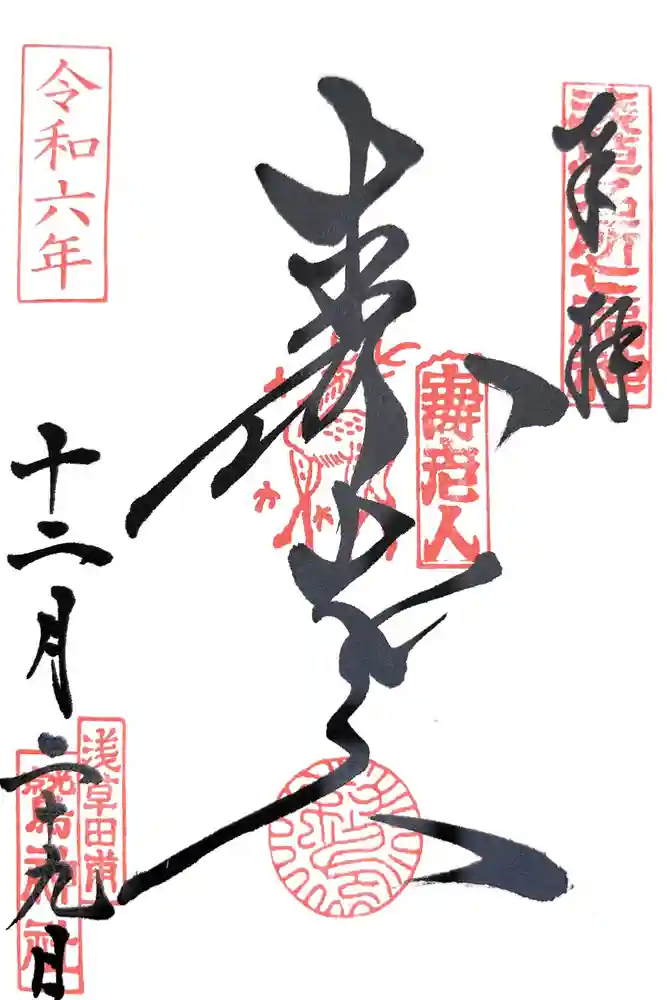 浅草名所七福神
奉拝
寿老人
壽老人
令和六年
十二月二十九日
浅草田甫
鷲神社